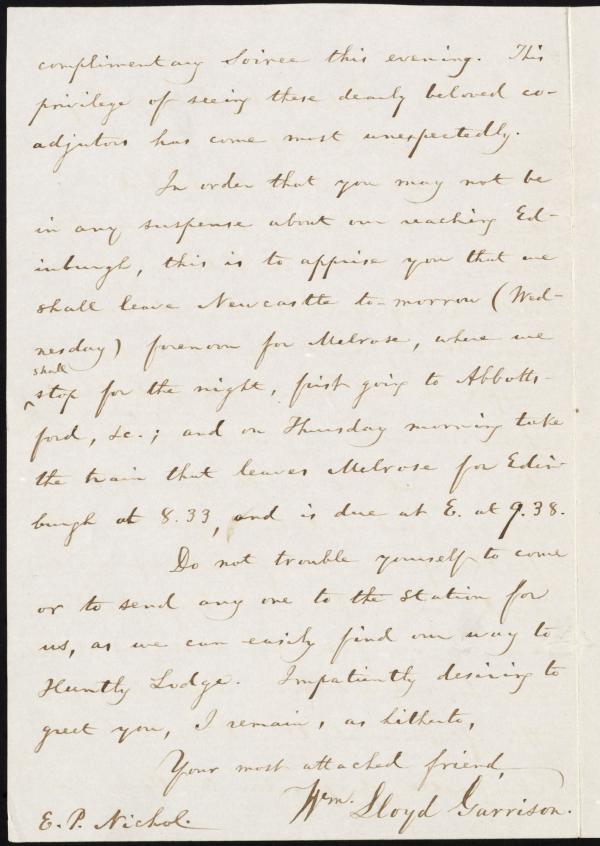 complimentary Soiree this evening. This
privilege of seeing these dearly beloved co-
adjutors has come most unexpectedly.
In order that you may not be
in any suspense about our reaching Ed-
inburgh, this is to apprise you that we
shall leave Newcastle to-morrow (Wed-
nesday) forenoon for Melrose, where we
shall
^stop for the night, first going to Abbotts-
ford, &c.; and on Thursday morning take
the train that leaves Melrose for Edin-
burgh at 8.33, and is due at E. at 9.38.
Do not trouble yourself to come
or to send any one to the station for
us, as we can easily find our way to
Huntly Lodge. Impatiently desiring to
greet you, I remain, as hitherto,
Your most attached friend,
Wm. Lloyd Garrison.
E. P. Nichol.